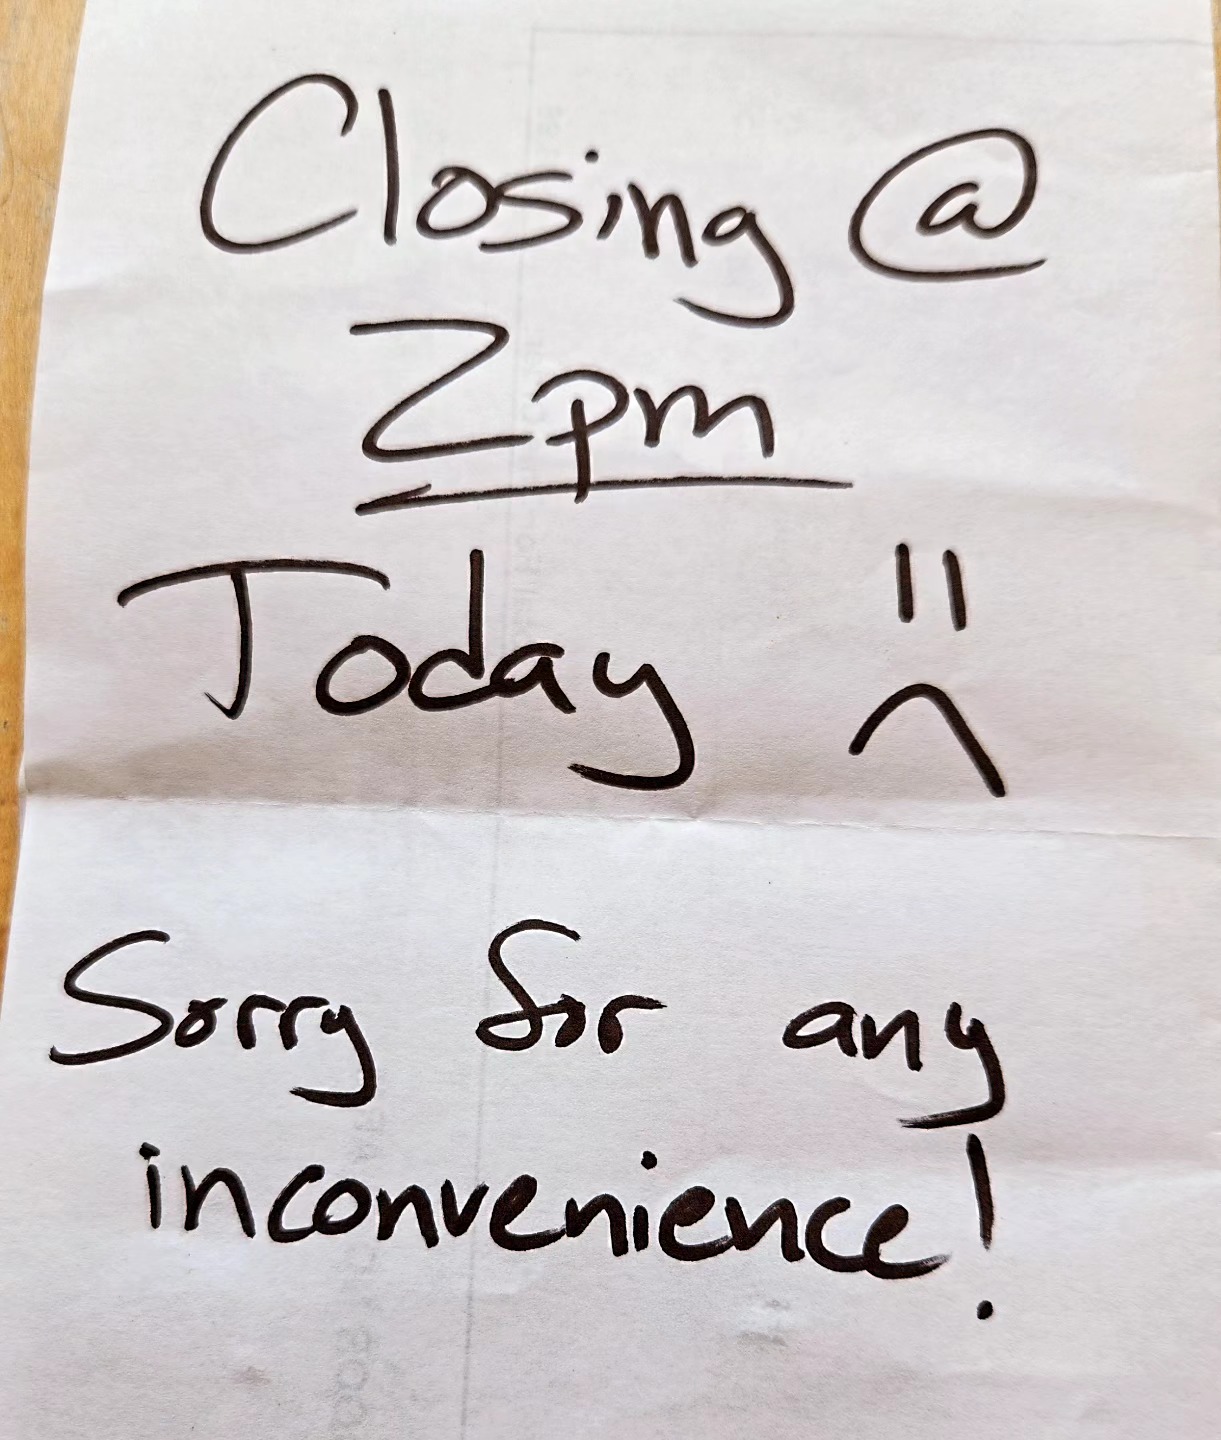 Closing @
2pm
Today
Sorry for any
inconvenience!